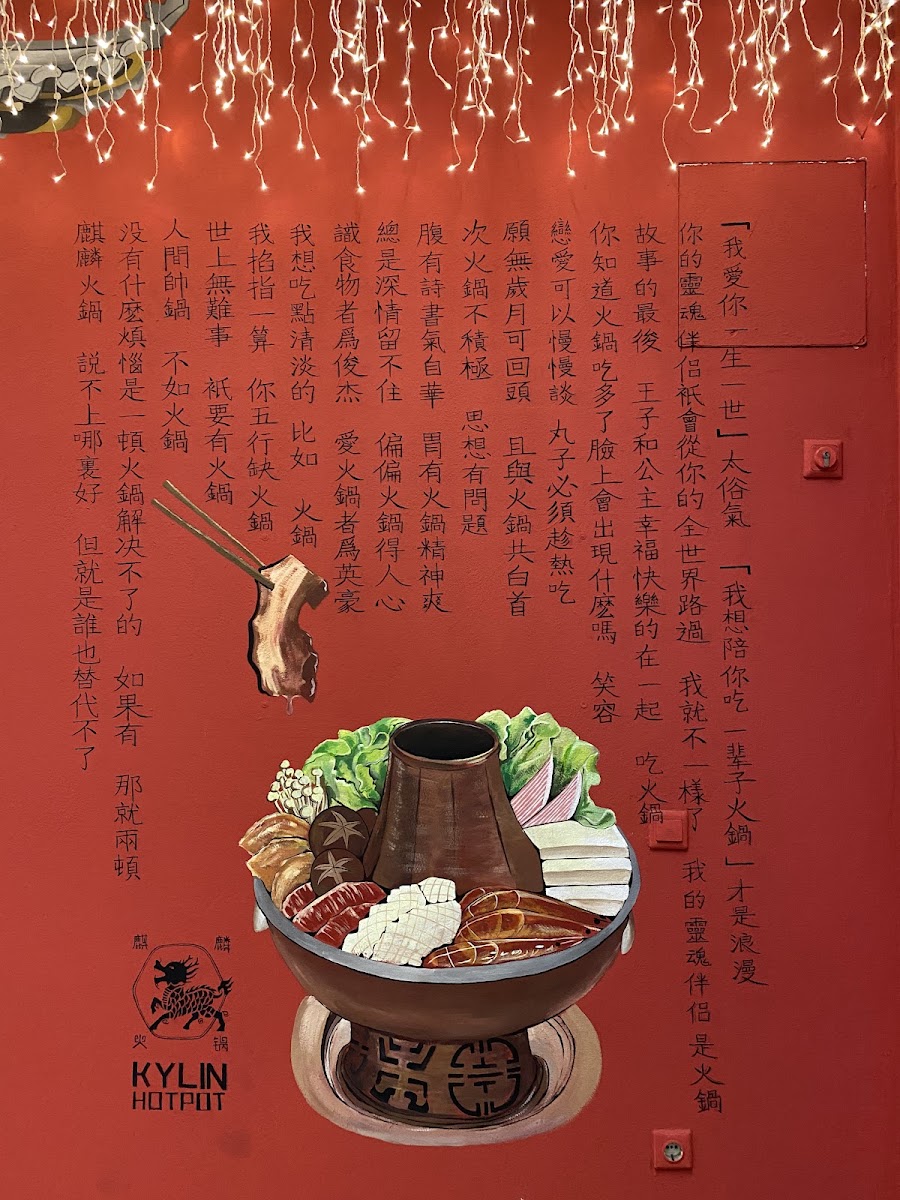 「我愛你一生一世」太俗氣 「我想陪你吃一輩子火鍋」才是浪漫
你的靈魂伴侶衹會從你的全世界路過 我就不一樣了 我的靈魂伴侶是火鍋
故事的最後 王子和公主幸福快樂的在一起 吃火鍋
你知道火鍋吃多了臉上會出現什麽嗎 笑容
戀愛可以慢慢談 丸子必須趁熱吃
願無歲月可回頭 且與火鍋共白首
次火鍋不積極 思想有問題
腹有詩書氣自華 胃有火鍋精神爽
總是深情留不住 偏偏火鍋得人心
識食物者爲俊杰 愛火鍋者爲英豪
我想吃點清淡的 比如 火鍋
我掐指一算 你五行缺火鍋
世上無難事 衹要有火鍋
人間帥鍋 不如火鍋
没有什麽煩惱是一頓火鍋解决不了的 如果有 那就兩頓
麒麟火鍋 説不上哪裏好 但就是誰也替代不了
麒麟
火锅
KYLIN
HOTPOT